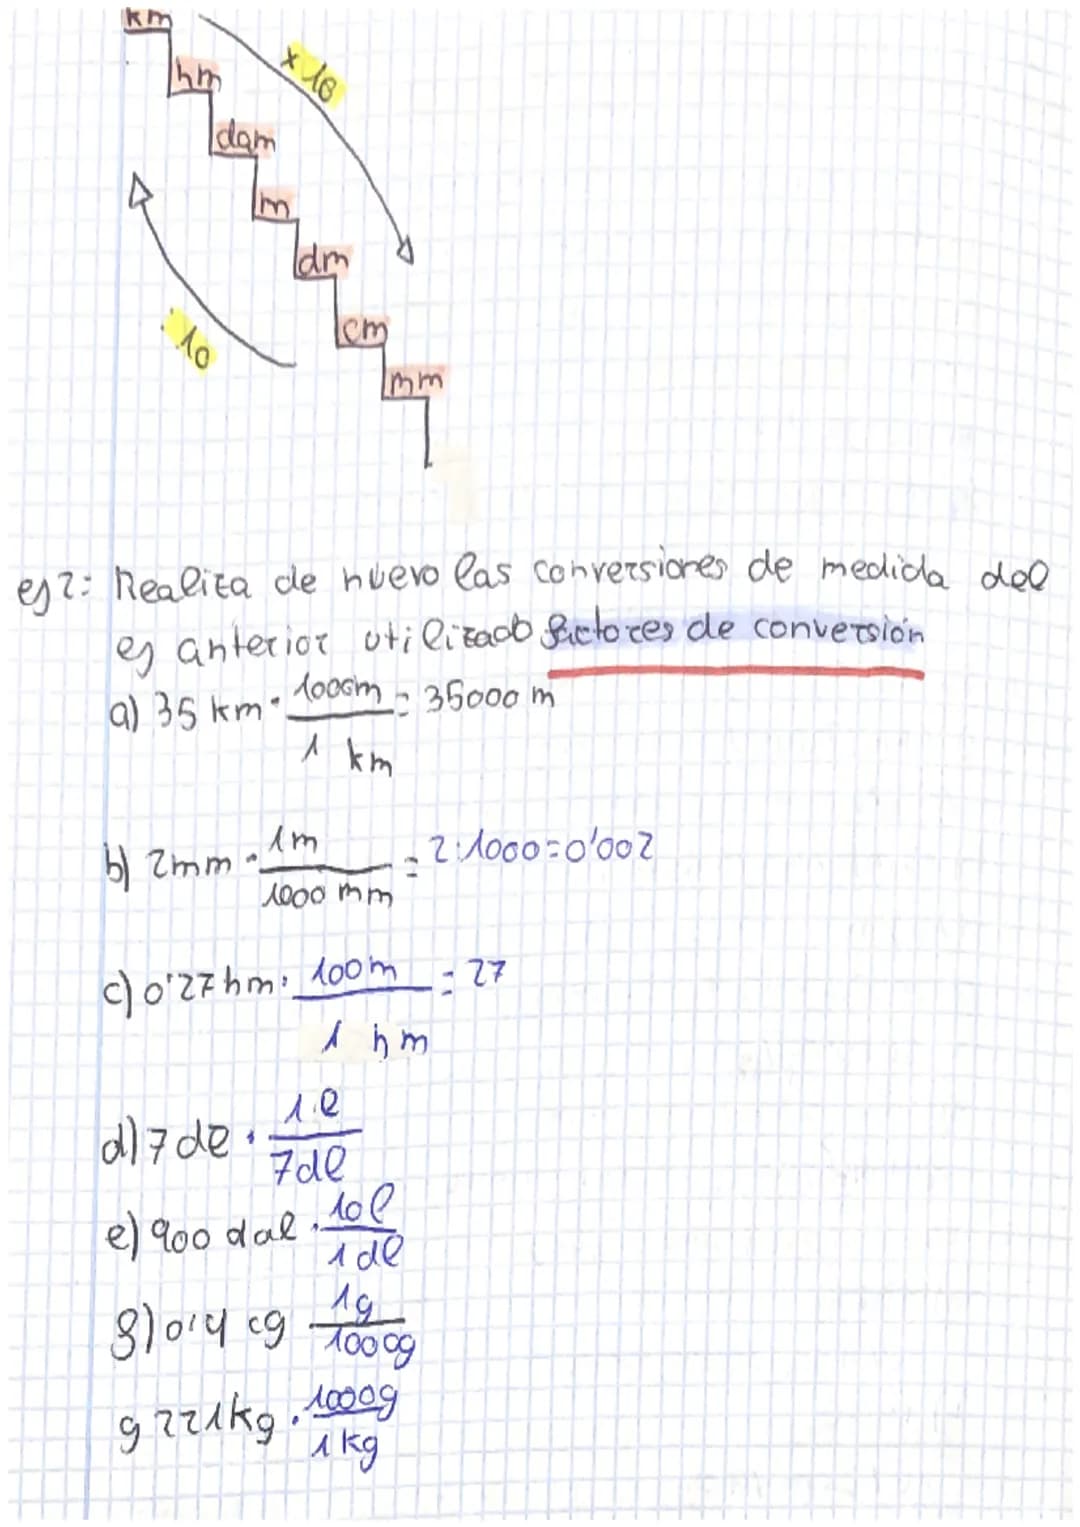 km
x 10
hm
dam
m
dm
: 10
cm
mm
ej 2: Realiza de nuevo las conversiones de medida del
ej anterior utilizado factores de conversión
a) 35 km · 1000m / 1 km = 35000 m
b) 2mm · 1m / 1000 mm = 2:1000=0'002
c) 0'27 hm · 100m / 1 hm = 27
d) 7 dl · 1 l / 7dl
e) 900 dal · 10l / 1 dl
g) 0'4 cg 1g / 100 cg
g 221kg · 1000g / 1 kg